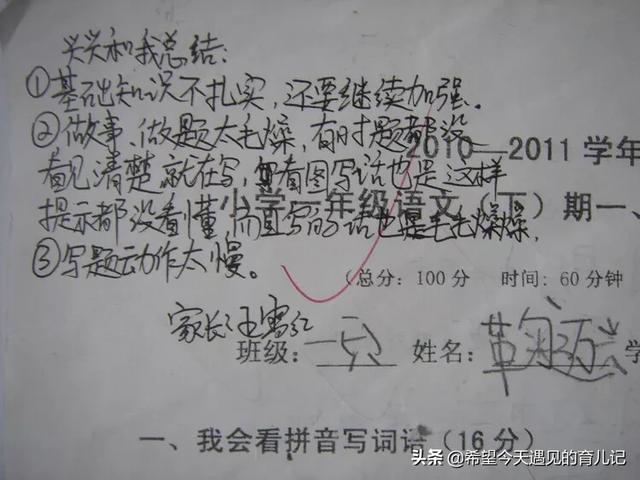 兴兴和我总结：
①基础知识不扎实，还要继续加强。
②做事、做题太毛燥，有时题都没
看见清楚就在写，如看图写话也是这样
提示都没看懂，而且写的话也是毛毛燥燥，
③写题动作太慢。
2010—2011学年
小学一年级语文（下）期一、
（总分：100分 时间：60分钟
家长：王
班级： 姓名： 学
一、我会看拼音写词语（16分）
头条 @希望今天遇见的育儿记